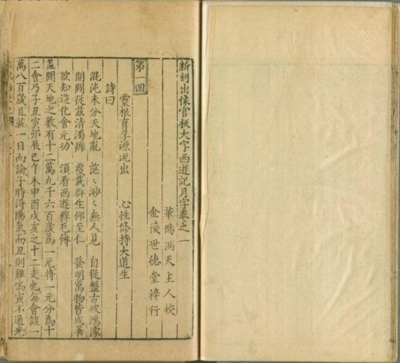 新刻出像官板大字西遊記月字卷之一
華陽洞天主人校
金陵世德堂梓行
第一回
靈根育孕源流出　心性修持大道生
詩曰
混沌未分天地亂　茫〻渺〻無人見　自從盤古破鴻濛
開闢從茲清濁辨　覆載群生仰至仁　發明萬物皆成善
欲知造化會元功　須看西遊釋厄傳
盖聞天地之數有十二萬九千六百歲為一元將一元分為十
二會乃子丑寅卯辰巳午未申酉戌亥之十二支也每會該一
萬八百歲且就一日而論子時得陽氣而丑則雞鳴寅不通光